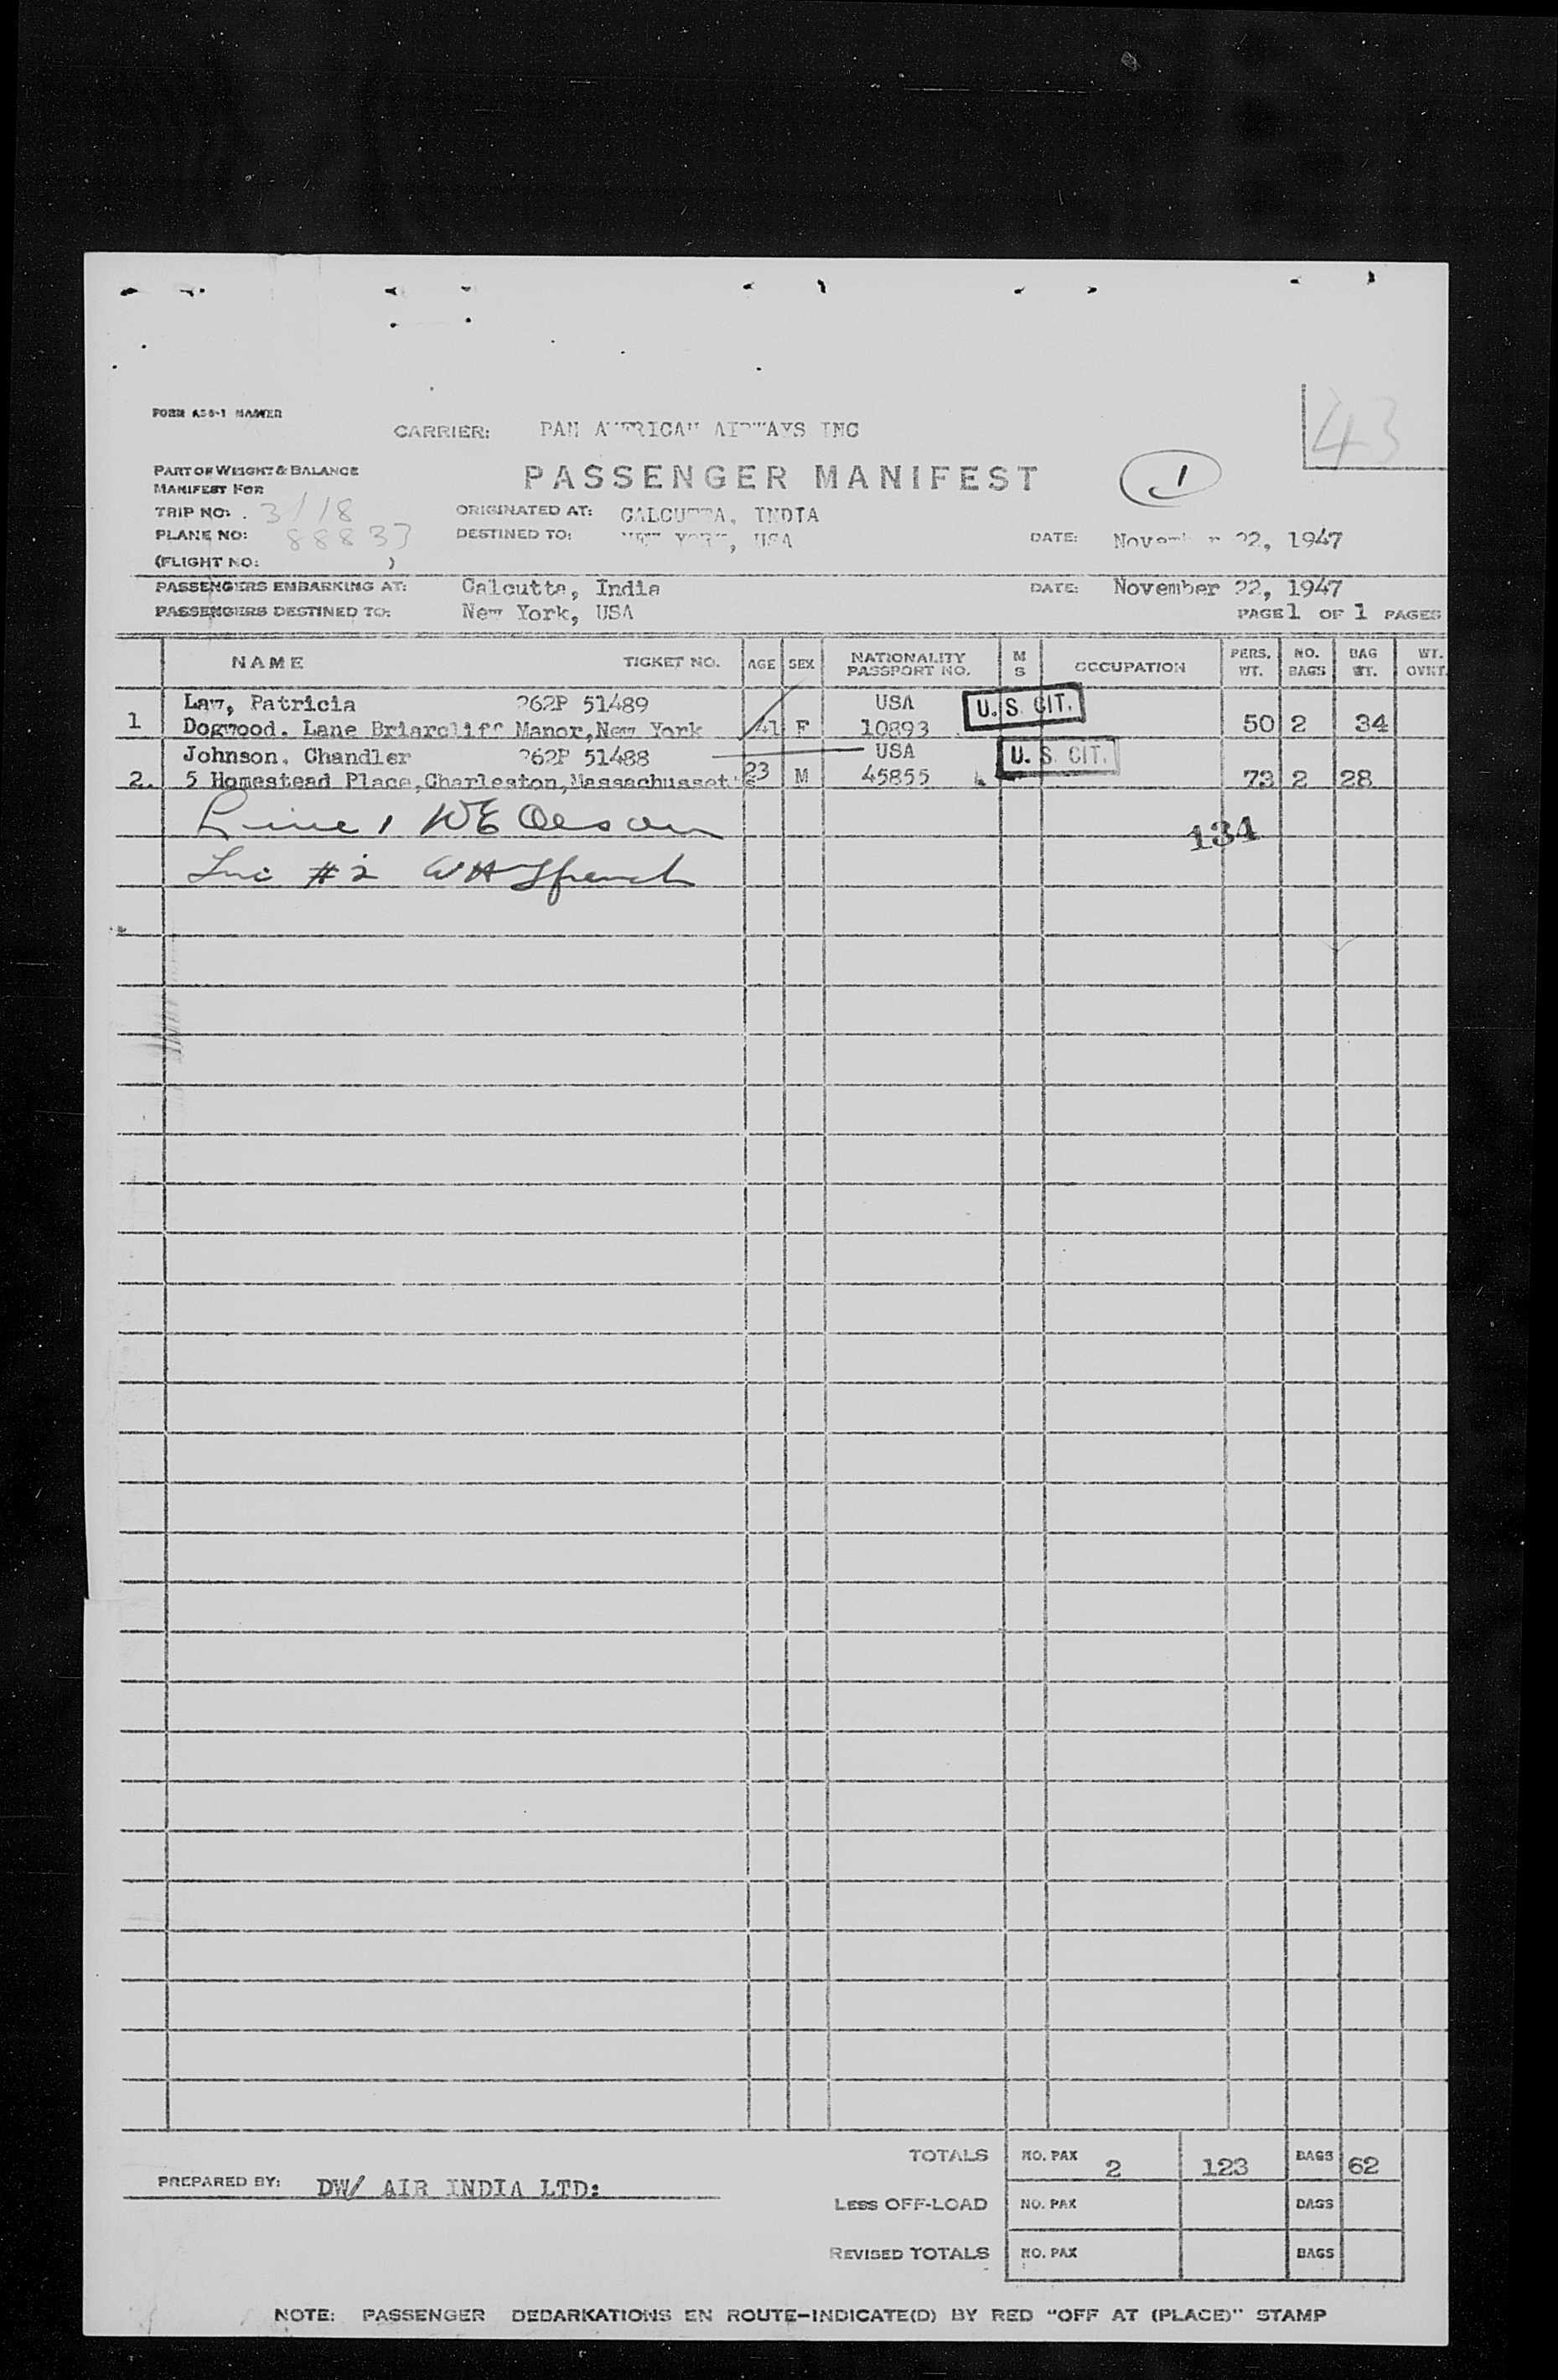 43
FORM
CARRIER: PAN AMERICAN AIRWAYS INC
PART OF WEIGHT & BALANCE
MANIFEST FOR
PASSENGER MANIFEST
1
TRIP NO: 3/18
ORIGINATED AT: CALCUTTA, INDIA
PLANE NO: 88833
DESTINED TO: NEW YORK, USA
DATE: November 22, 1947
(FLIGHT NO: )
PASSENGERS EMBARKING AT: Calcutta, India DATE: November 22, 1947
PASSENGERS DESTINED TO: New York, USA PAGE 1 OF 1 PAGES
NAME TICKET NO. AGE SEX NATIONALITY PASSPORT NO. M S OCCUPATION PERS. WT. NO. BAGS BAG WT. WT.
Law, Patricia 262P 51489 USA U.S. CIT.
1 Dogwood. Lane Briarcliff Manor,New York 41 F 10893 50 2 34
Johnson. Chandler 262P 51488 USA U. S. CIT.
2. 5 Homestead Place,Charleston,Massachussetts 23 M 45855 73 2 28
Line 1 WE Olson
134
#2
TOTALS NO. PAX 2 123 BAGS 62
PREPARED BY: DW/ AIR INDIA LTD:
LESS OFF-LOAD NO. PAX BAGS
REVISED TOTALS NO. PAX BAGS
NOTE: PASSENGER DEBARKATIONS EN ROUTE-INDICATE(D) BY RED "OFF AT (PLACE)" STAMP